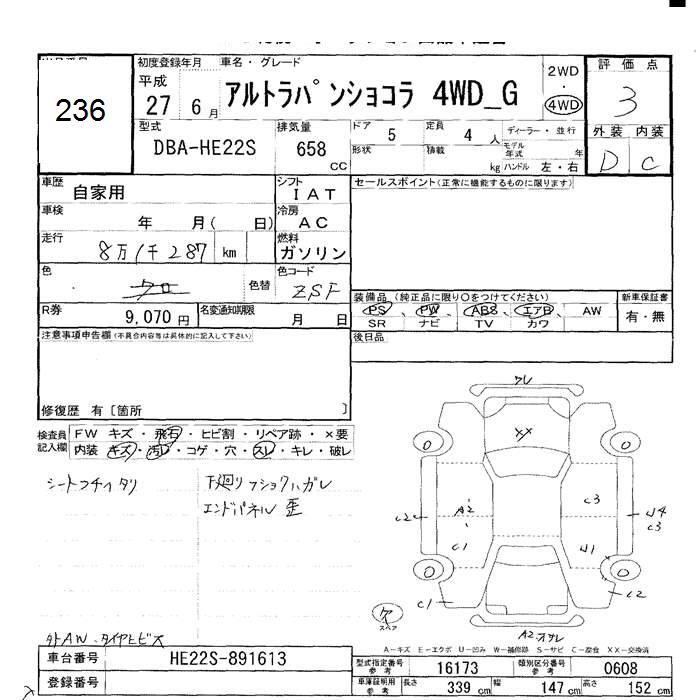 236
初度登録年月 車名・グレード
平成 27 6月 アルトラパンショコラ 4WD_G
2WD
・
4WD
評価点
3
外装 内装
D C
型式 排気量
DBA-HE22S 658 CC
ドア 5 定員 4 人 ディーラー・並行
形状 積載 kg モデル年式 年
ハンドル 左・右
車歴 自家用
シフト IAT
セールスポイント(正常に機能するものに限ります)
車検 年 月( 日)
冷房 AC
走行 8万1千287 km
燃料 ガソリン
色 クロ 色替
色コード ZSF
R券 9,070円 名変通知期限 月 日
装備品 (純正品に限り○をつけてください) 新車保証書
PS、PW、ABS、エアB、AW 有・無
SR ナビ TV カワ
後日品
注意事項申告欄(不具合内容等は具体的に記入して下さい)
修復歴 有〔箇所 〕
検査員記入欄
FW キズ・飛石・ヒビ割・リペア跡・×要
内装 キズ・汚レ・コゲ・穴・スレ・キレ・破レ
シートフチヘタリ
下廻リ
エンドパネル 歪
ワレ
XX
A2
C1
C2
C3
U1
U4
C3
C1
C2
0
0
0
0
欠
スペア
A2
外AW、タイヤヒビ大
A-キズ E-エクボ U-凹み W-補修跡 S-サビ C-腐食 XX-交換済
車台番号 HE22S-891613
登録番号
型式指定番号参考 16173 類別区分番号参考 0608
車庫証明用参考 長さ 339cm 幅 147cm 高さ 152cm